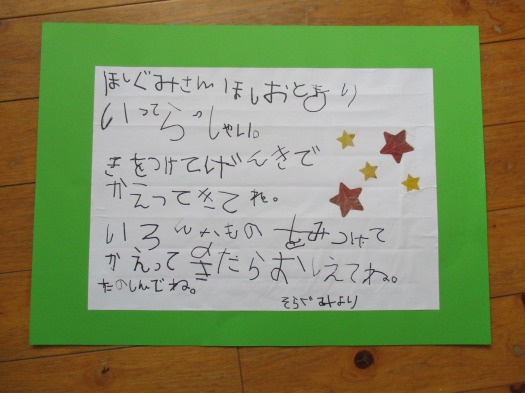 ほしぐみさん ほしおとまり
いってらっしゃい。
きをつけてげんきで
かえってきてね。
いろんなもの みつけて
かえってきたらおしえてね。
たのしんでね。
そらぐみより